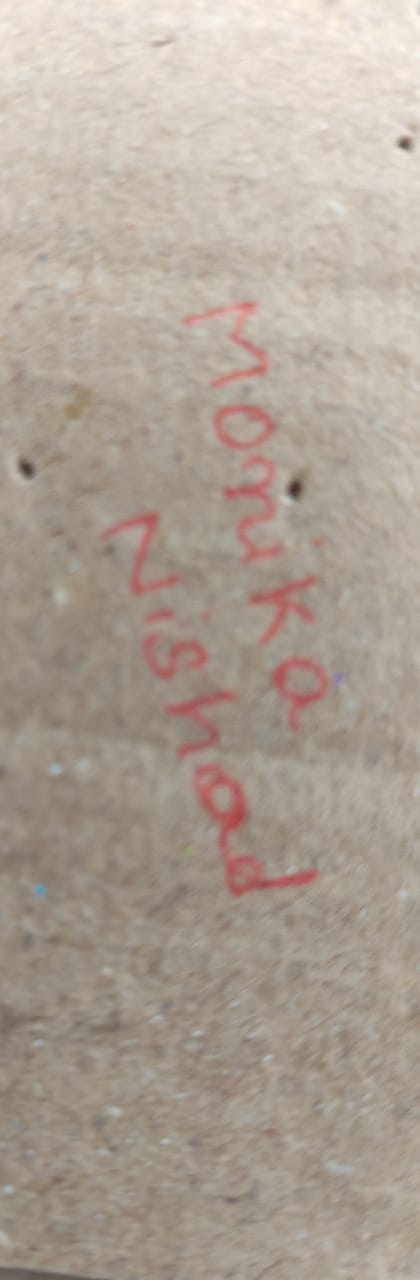 Monika
Nishad